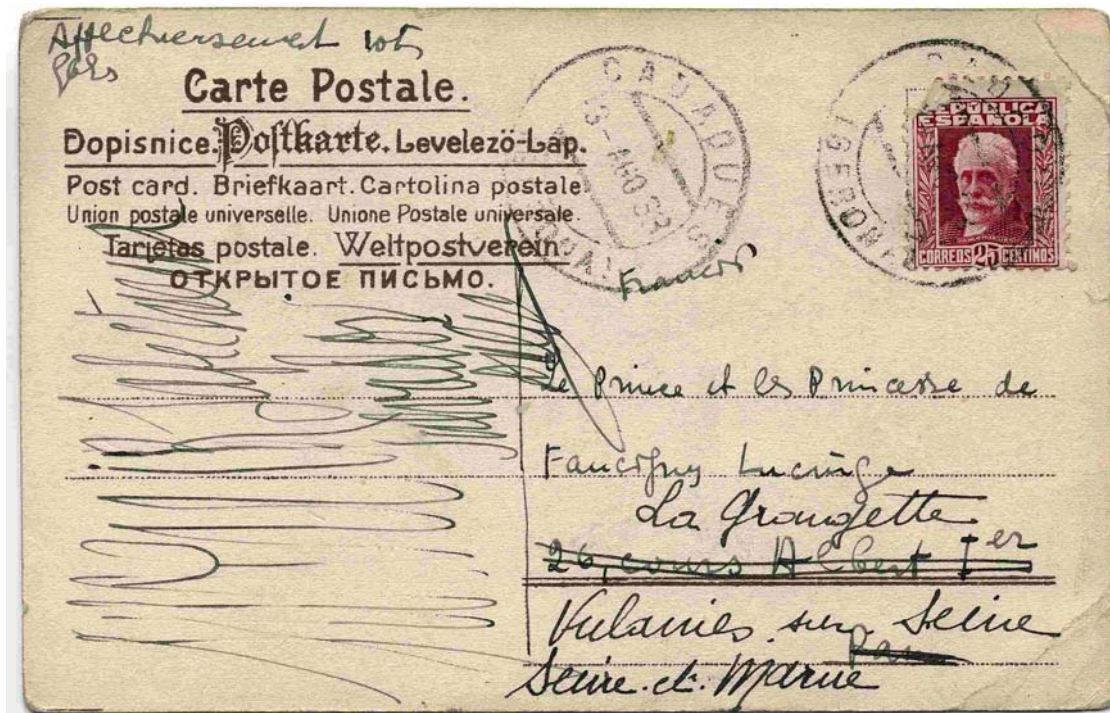 Affectueusement vots
Carte Postale.
Dopisnice. Postkarte. Levelezö-Lap.
Post card. Briefkaart. Cartolina postale.
Union postale universelle. Unione Postale universale.
Tarjetas postale. Weltpostverein.
ОТКРЫТОЕ ПИСЬМО.
CADAQUES
AGO 32
(GERONA)
REPÚBLICA
ESPAÑOLA
CORREOS 25 CENTIMOS
Le Prince et les Princesse de
Faucigny Lucinge
La Grangette
26, cours Albert Ier
Vulaines sur Seine
Seine et Marne